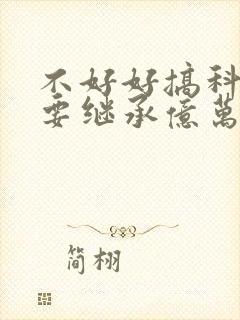 不好好搞科
要继承億萬
简栩